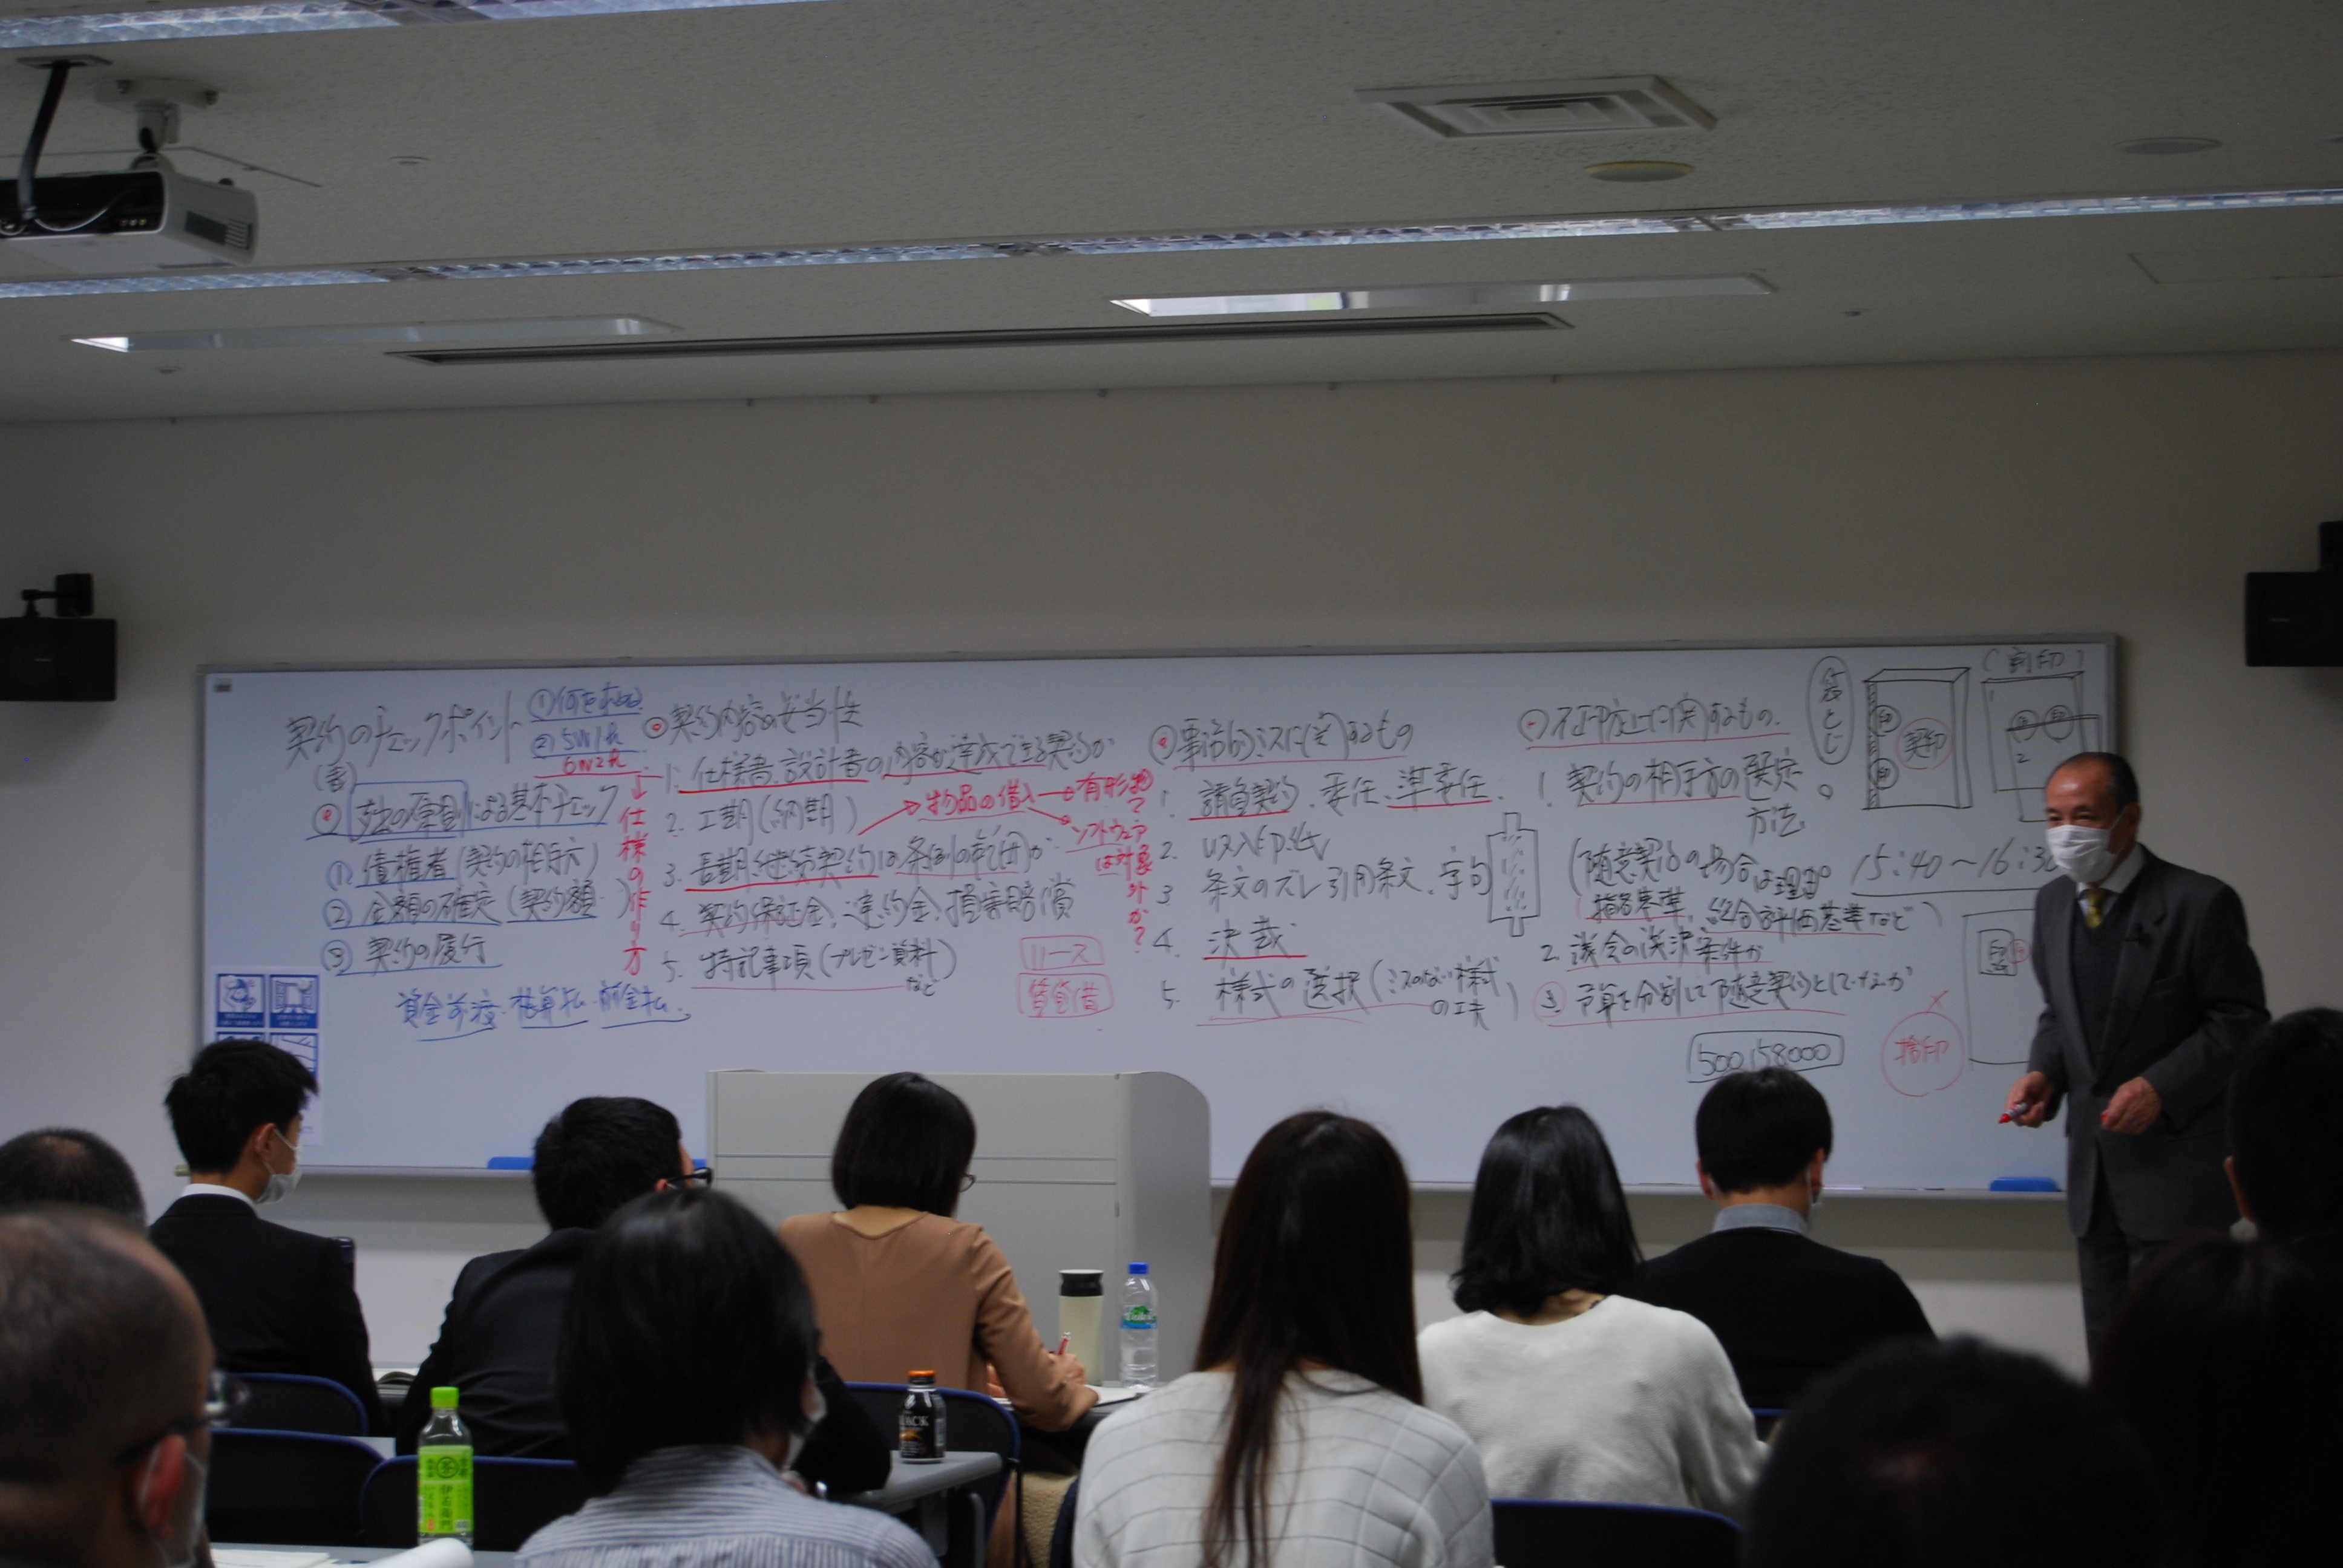 契約のチェックポイント
(書)
① 何を
② 5W1H
6W2H
仕様の作り方
支出の原則による基本チェック
① 債権者(契約の相手方)
② 金額の確定(契約額)
③ 契約の履行
資金前渡・概算払・前金払
◎契約内容の妥当性
1. 仕様書、設計書の内容が達成できる契約か
2. 工期(納期)
3. 長期継続契約は条例の範囲か
4. 契約保証金、違約金、損害賠償
5. 特記事項(プレゼン資料)
など
物品の借入
有形物?
ソフトウェア
は対象外か?
リース
賃貸借
事務的ミスに関するもの
1. 請負契約、委任、準委任
2. 収入印紙
3 条文のズレ 引用条文、字句
4. 決裁
5. 様式の選択(ミスのない様式
の工夫)
不正防止に関するもの
1. 契約の相手方の選定
方法
(随意契約の場合は理由
指名基準、総合評価基準など)
2. 議会の議決案件か
3. 予算を分割して随意契約としてないか
500,158,000
袋とじ
契印
(割印)
2
15:40〜16:30
捨印
BLACK
茶
伊右衛門